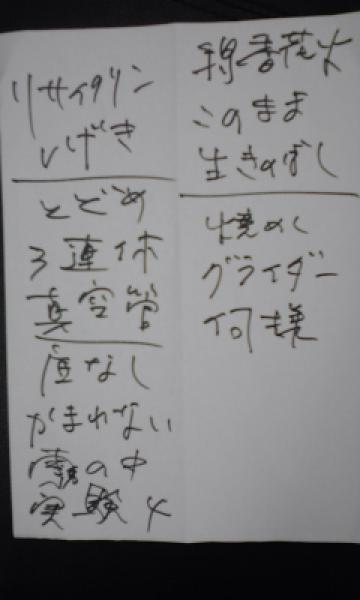 線香花火
このまま
生きのばし
焼めし
グライダー
何様
リサイタリン
いげき
とどめ
3連休
真空管
座なし
かまわない
霧の中
実験4